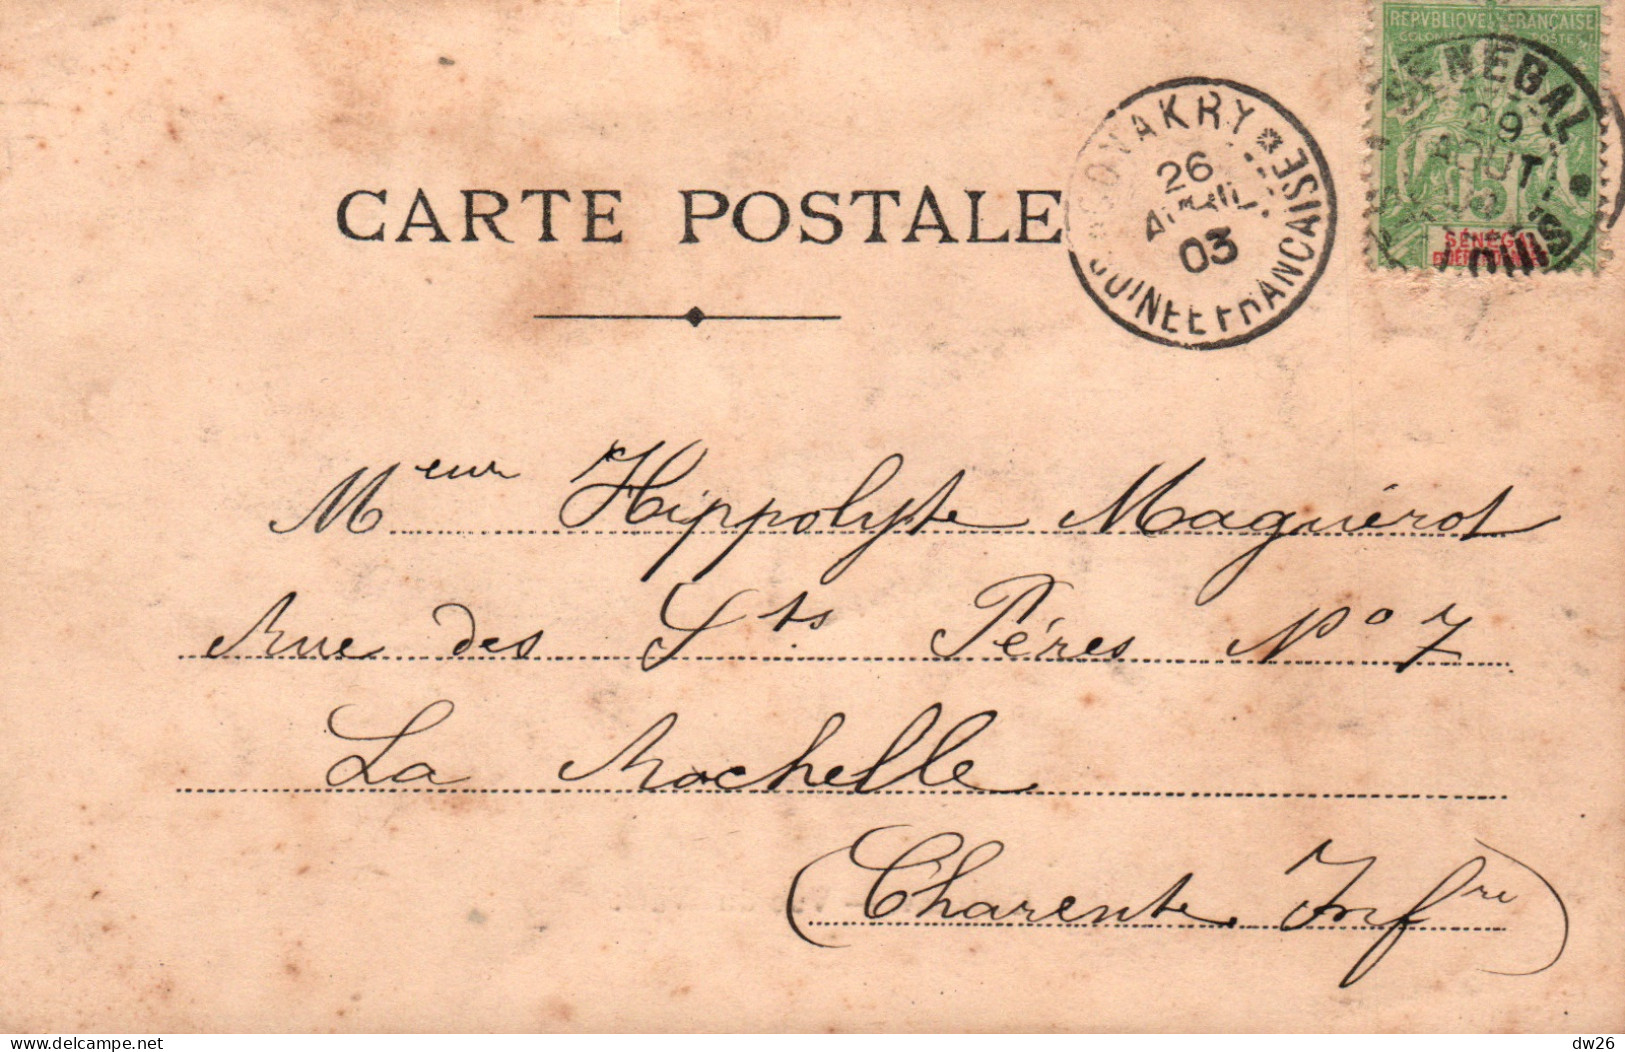 REPVBLIQVE FRANÇAISE
COLONIES POSTES
SÉNÉGAL
29
AOUT
5
SÉNÉGAL
CONAKRY
26
AVRIL
03
GUINÉE FRANÇAISE
CARTE POSTALE
Meur Hippolyte Maguérot
Rue des Sts Péres No 7
La Rochelle
(Charente Infre)
delcampe.net
dw26